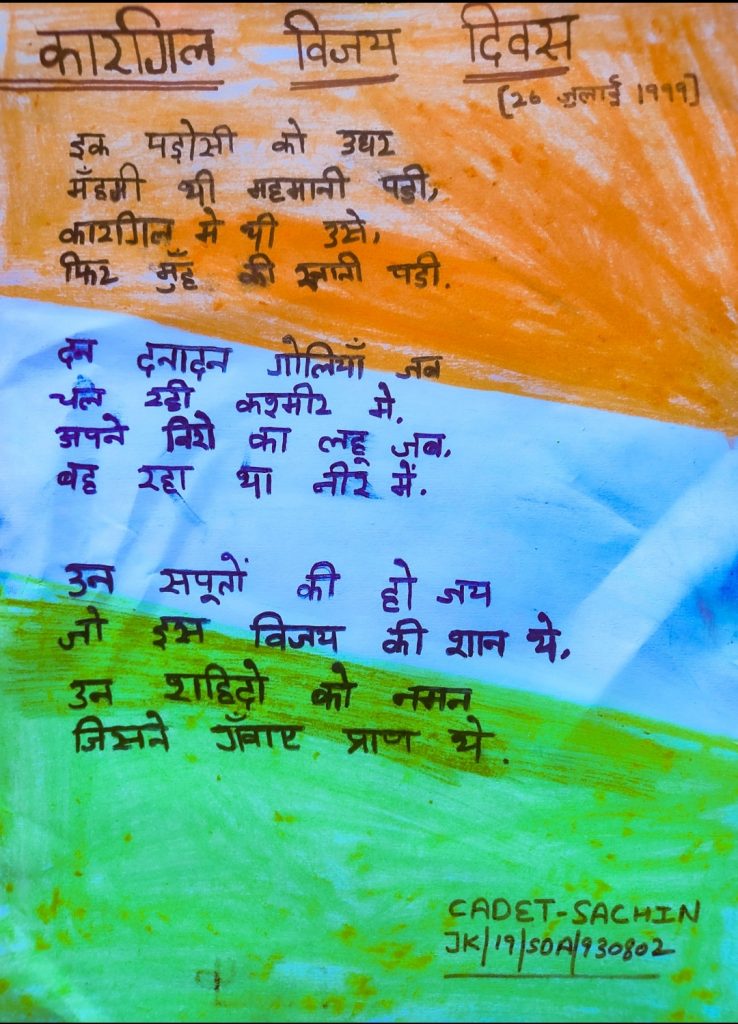 कारगिल विजय दिवस
[26 जुलाई 1999]
इक पड़ोसी को उधर
मँहगी थी महमानी पडी,
कारगिल मे थी उसे,
फिर मुँह की खानी पडी.
दन दनादन गोलियाँ जब
चल रही कश्मीर मे,
अपने विरो का लहू जब,
बह रहा था नीर में.
उन सपूतों की हो जय
जो इस विजय की शान थे,
उन शहिदो को नमन
जिसने गँवाए प्राण थे.
CADET-SACHIN
JK/19/SDA/930802